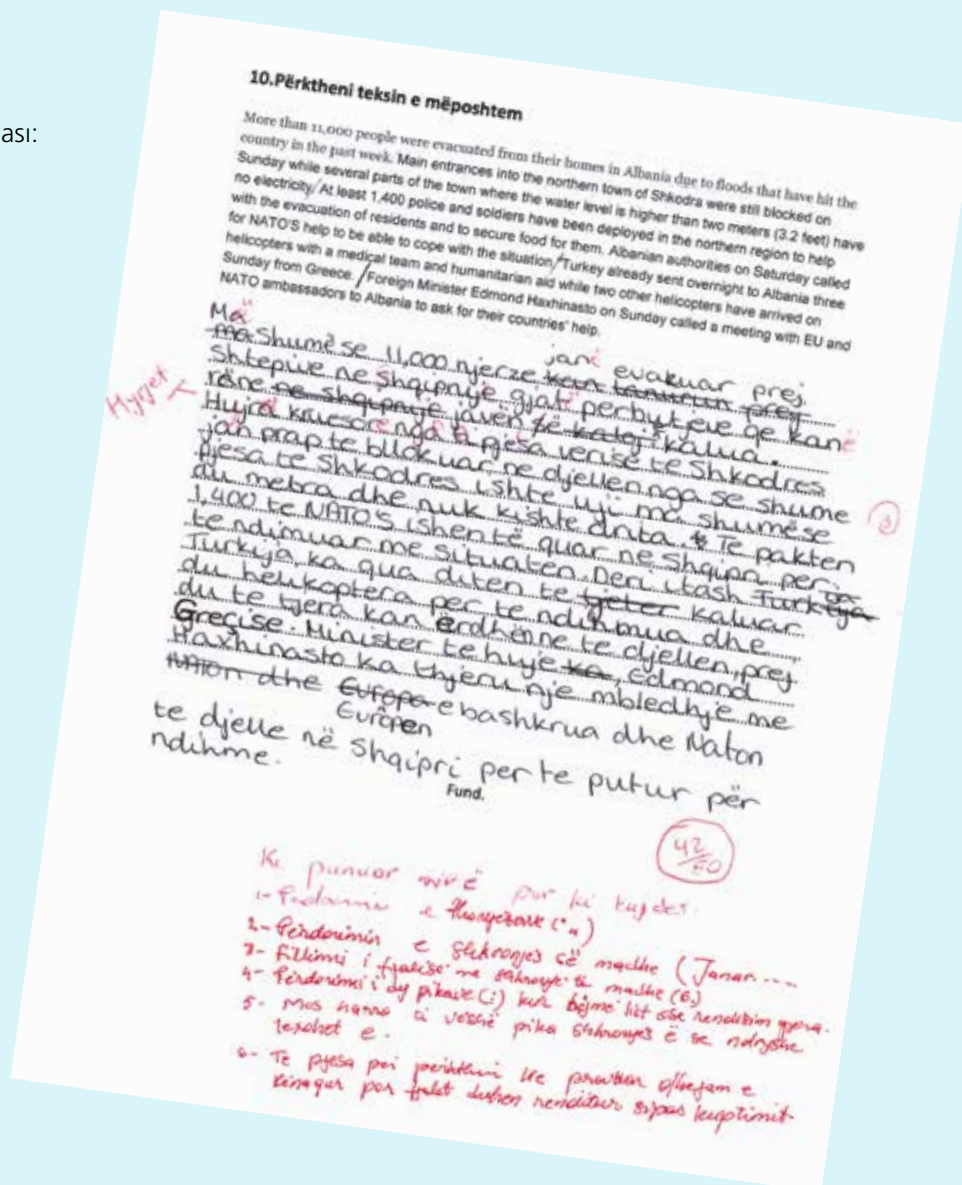 ası:
10.Përktheni teksin e mëposhtem
More than 11,000 people were evacuated from their homes in Albania due to floods that have hit the
country in the past week. Main entrances into the northern town of Shkodra were still blocked on
Sunday while several parts of the town where the water level is higher than two meters (3.2 feet) have
no electricity/At least 1,400 police and soldiers have been deployed in the northern region to help
with the evacuation of residents and to secure food for them. Albanian authorities on Saturday called
for NATO'S help to be able to cope with the situation/Turkey already sent overnight to Albania three
helicopters with a medical team and humanitarian aid while two other helicopters have arrived on
Sunday from Greece. /Foreign Minister Edmond Haxhinasto on Sunday called a meeting with EU and
NATO ambassadors to Albania to ask for their countries' help.
Më
ma Shumë se 11,000 njerze janë evakuar prej
shtepive ne Shqipnije gjatë perbytjeve qe kanë
Hyrjet
rëne ne shqipnije javën kalua.
Hujra kruesore nga pjesa verise te Shkodres
jan prap te bllokuar ne djellen nga se shume
pjesa te Shkodres ishte uji ma shumë se
du metra dhe nuk kishte drita. Te pakten
1,400 te NATO'S ishen të quar ne Shqipri per
te ndimuar me situaten. Deri itash Turkeja
Turkija, ka qua diten te tjeter kaluar
du helikoptera per te ndihmua dhe
du te tjera kan ërdhënne te djellen, prej
Greqise. Minister te huje ka, Edmond
Haxhinasto ka thjeru nje mbledhje me
NATOn dhe Europa e bashkrua dhe Naton
Europen
te djelle në Shqipri per te putur për
ndihme.
Fund.
42
Ke punuar mirë por ki kujdes.
1- e thonjëzave („)
2- Përdorimin e Shkronjës së madhe (Janar....
3- Fillimi i fjalisë me shkronjë të madhe (6.)
4- Përdorimi i dy pikave (:) kur bëjmë listë ose renditim gjëra.
5- Mos harro ti veshë pika shkronjës ë se ndryshe
lexohet e.
6- Te pjesa per perkthimi
kënaqur por fjalët duhen renditur sipas kuptimit